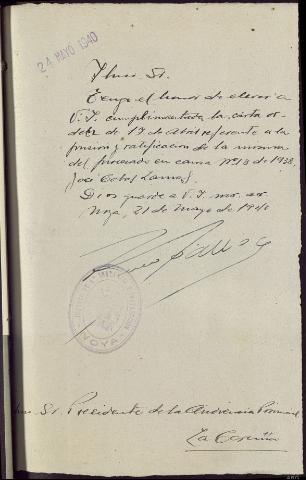 24 MAYO 1940
Ilmo. Sr.
Tengo el honor de elevar a
V.I. cumplimentada la carta or-
den de 17 de Abril referente a la
prision y ratificación de la misma
del procesado en causa Nº 18 de 1938,
José
Dios guarde a V.I. ms. as.
Noya, 21 de Mayo de 1940
NOYA
Ilmo. Sr. Presidente de la Audiencia Provincial
La Coruña